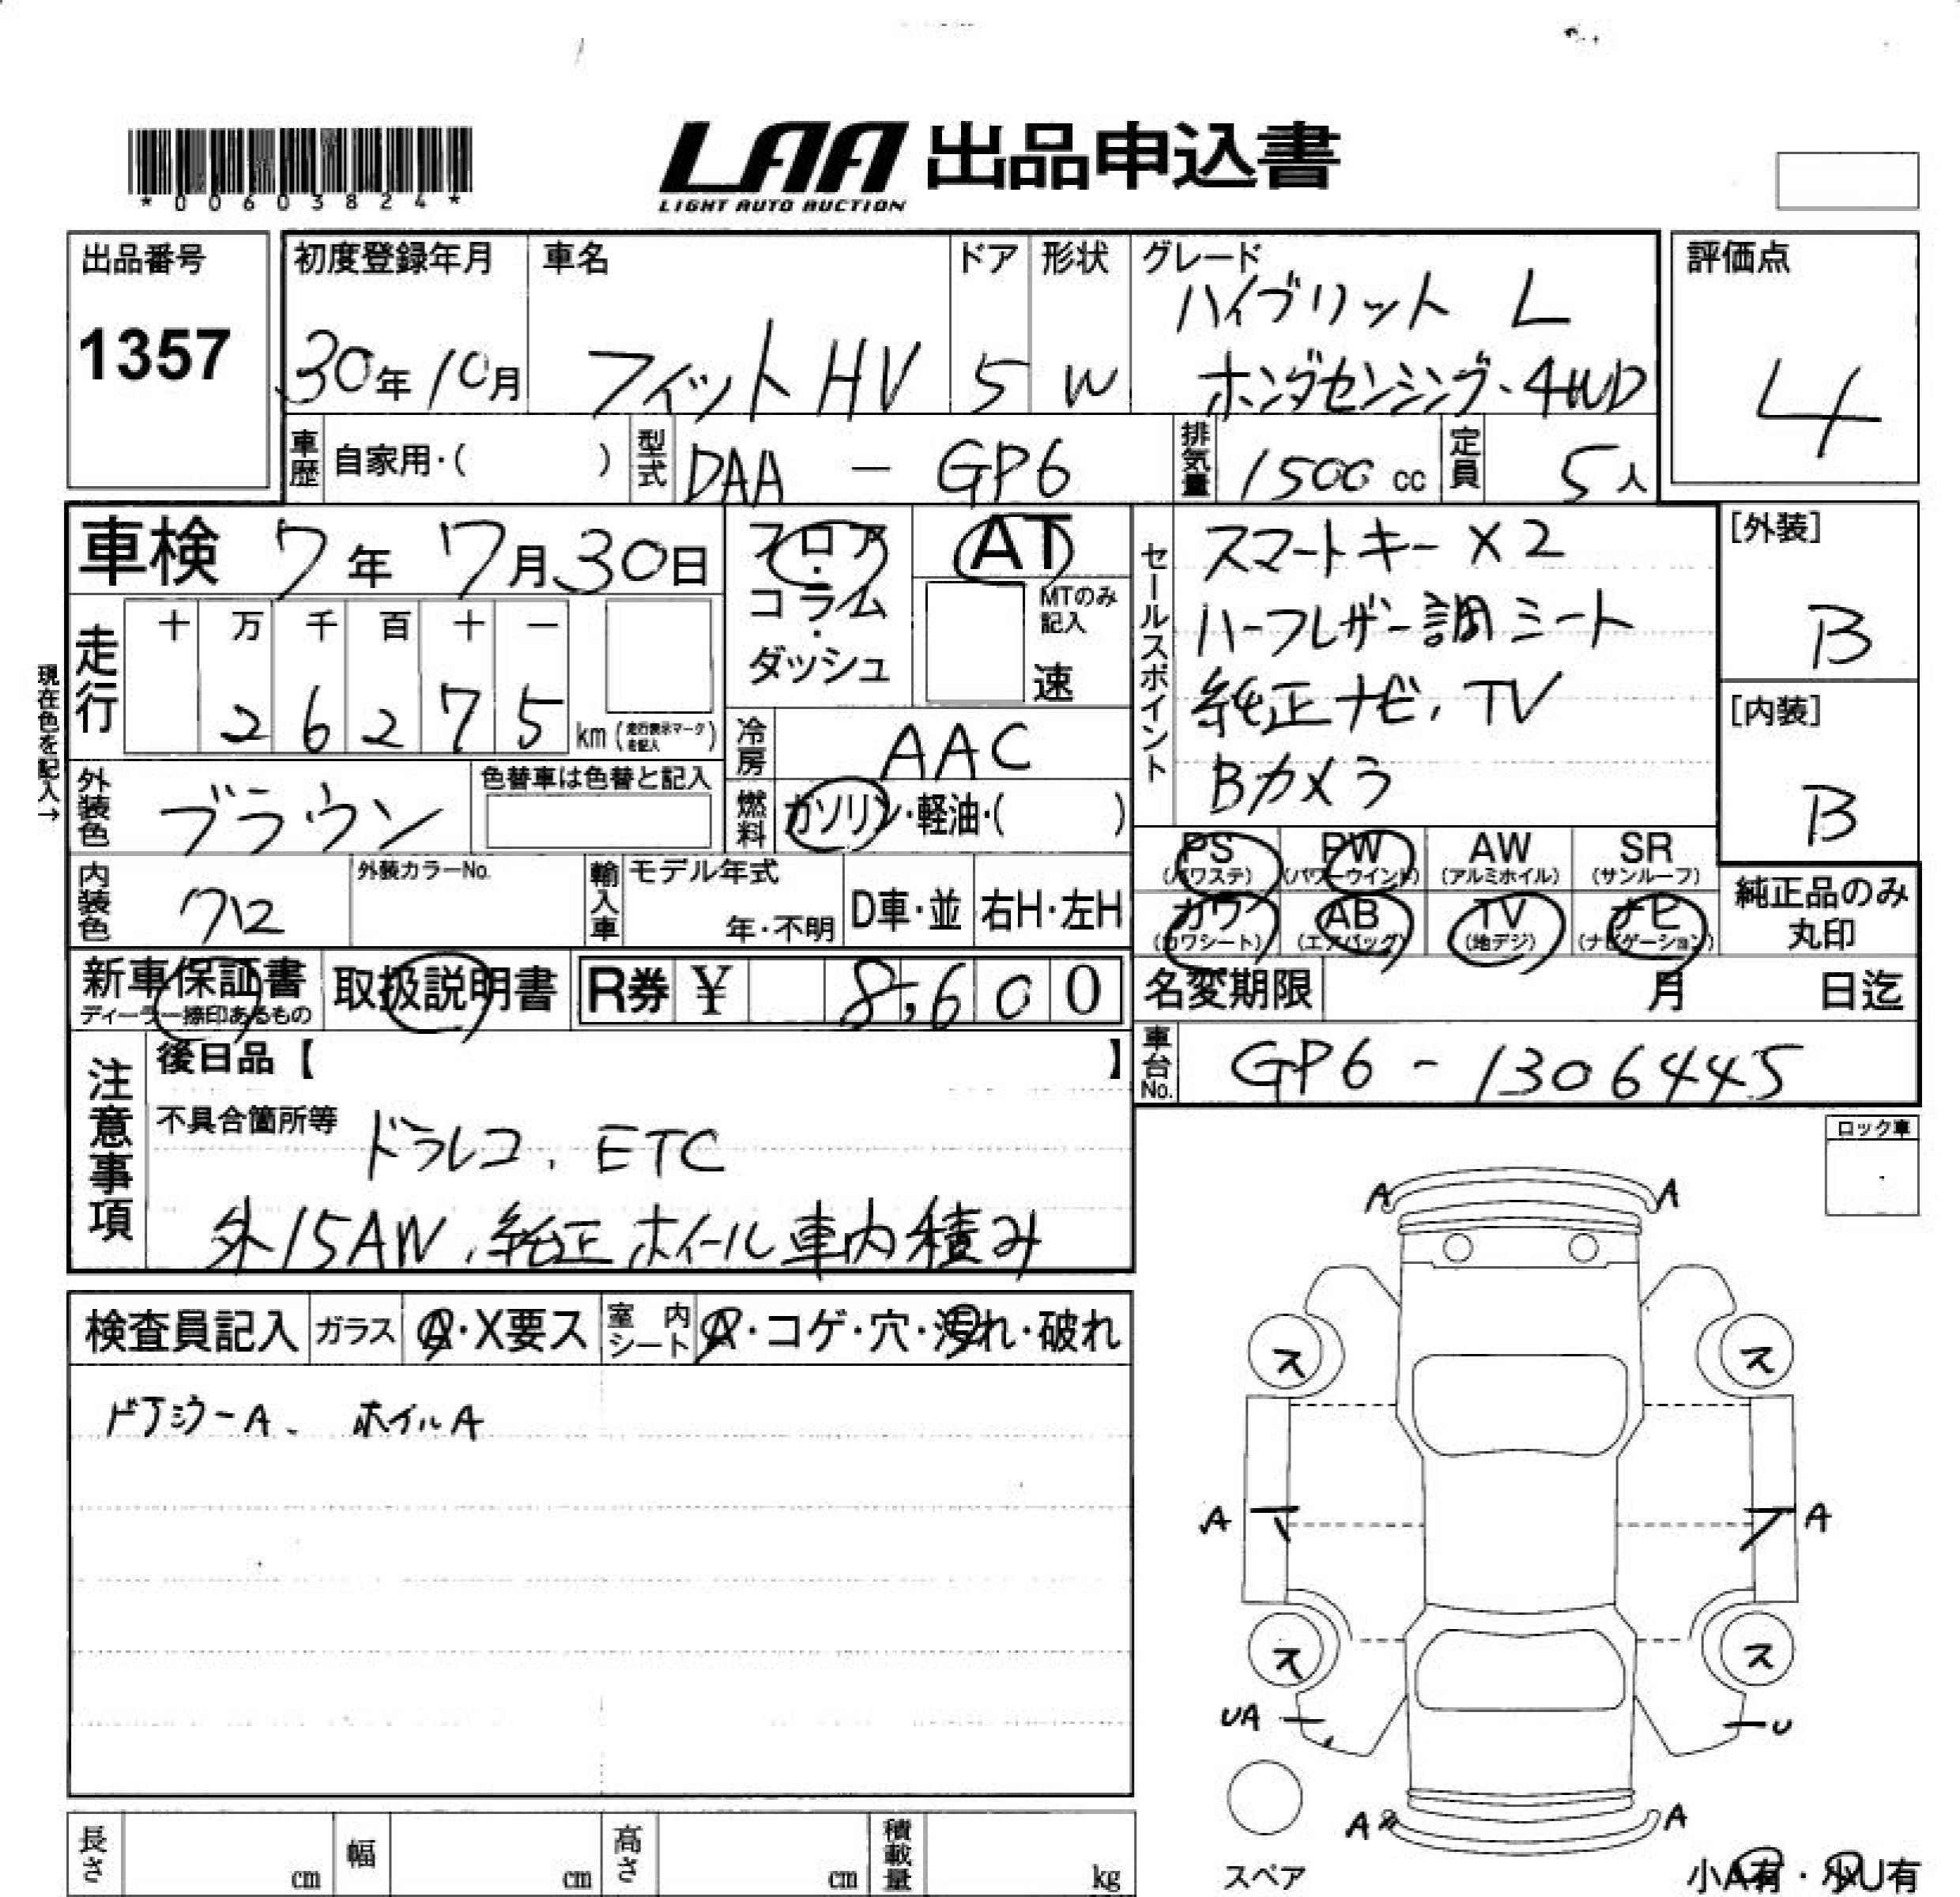 *00603824*
LAA 出品申込書
LIGHT AUTO AUCTION
出品番号
1357
初度登録年月
30年10月
車名
フィットHV
ドア
5
形状
W
グレード
ハイブリット L
ホンダセンシング・4WD
評価点
4
車歴 自家用・( )
型式 DAA - GP6
排気量 1500 cc
定員 5人
車検 7年 7月30日
走行
十 万 千 百 十 一
2 6 2 7 5 km (走行表示マークを記入)
現在色を記入→
フロア・コラム・ダッシュ
AT
MTのみ記入
速
冷房 AAC
燃料 ガソリン・軽油・( )
セールスポイント
スマートキー X2
ハーフレザー調シート
純正ナビ, TV
Bカメラ
[外装]
B
[内装]
B
外装色 ブラウン
色替車は色替と記入
内装色 クロ
外装カラーNo.
輸入車
モデル年式
年・不明
D車・並
右H・左H
PS (パワステ)
PW (パワーウインド)
AW (アルミホイル)
SR (サンルーフ)
カワ (カワシート)
AB (エアバッグ)
TV (地デジ)
ナビ (ナビゲーション)
純正品のみ
丸印
新車保証書
ディーラー捺印あるもの
取扱説明書
R券 ¥ 8,600
名変期限 月 日迄
車台No. GP6 - 1306445
注意事項
後日品【 】
不具合箇所等
ドラレコ, ETC
外15AW, 純正ホイール車内積み
ロック車
検査員記入
ガラス A・X要ス
室内シート A・コゲ・穴・汚れ・破れ
ドアミラーA、ホイルA
A A
ス ス
A A
ス ス
UA U
A A
スペア
小A有・小U有
長さ cm
幅 cm
高さ cm
積載量 kg